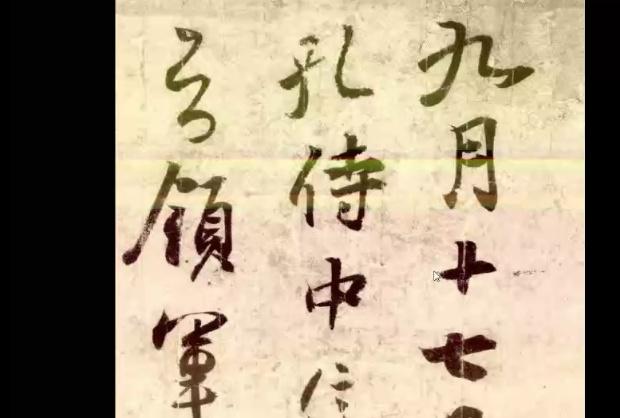 九月十七
孔侍中信
言領軍